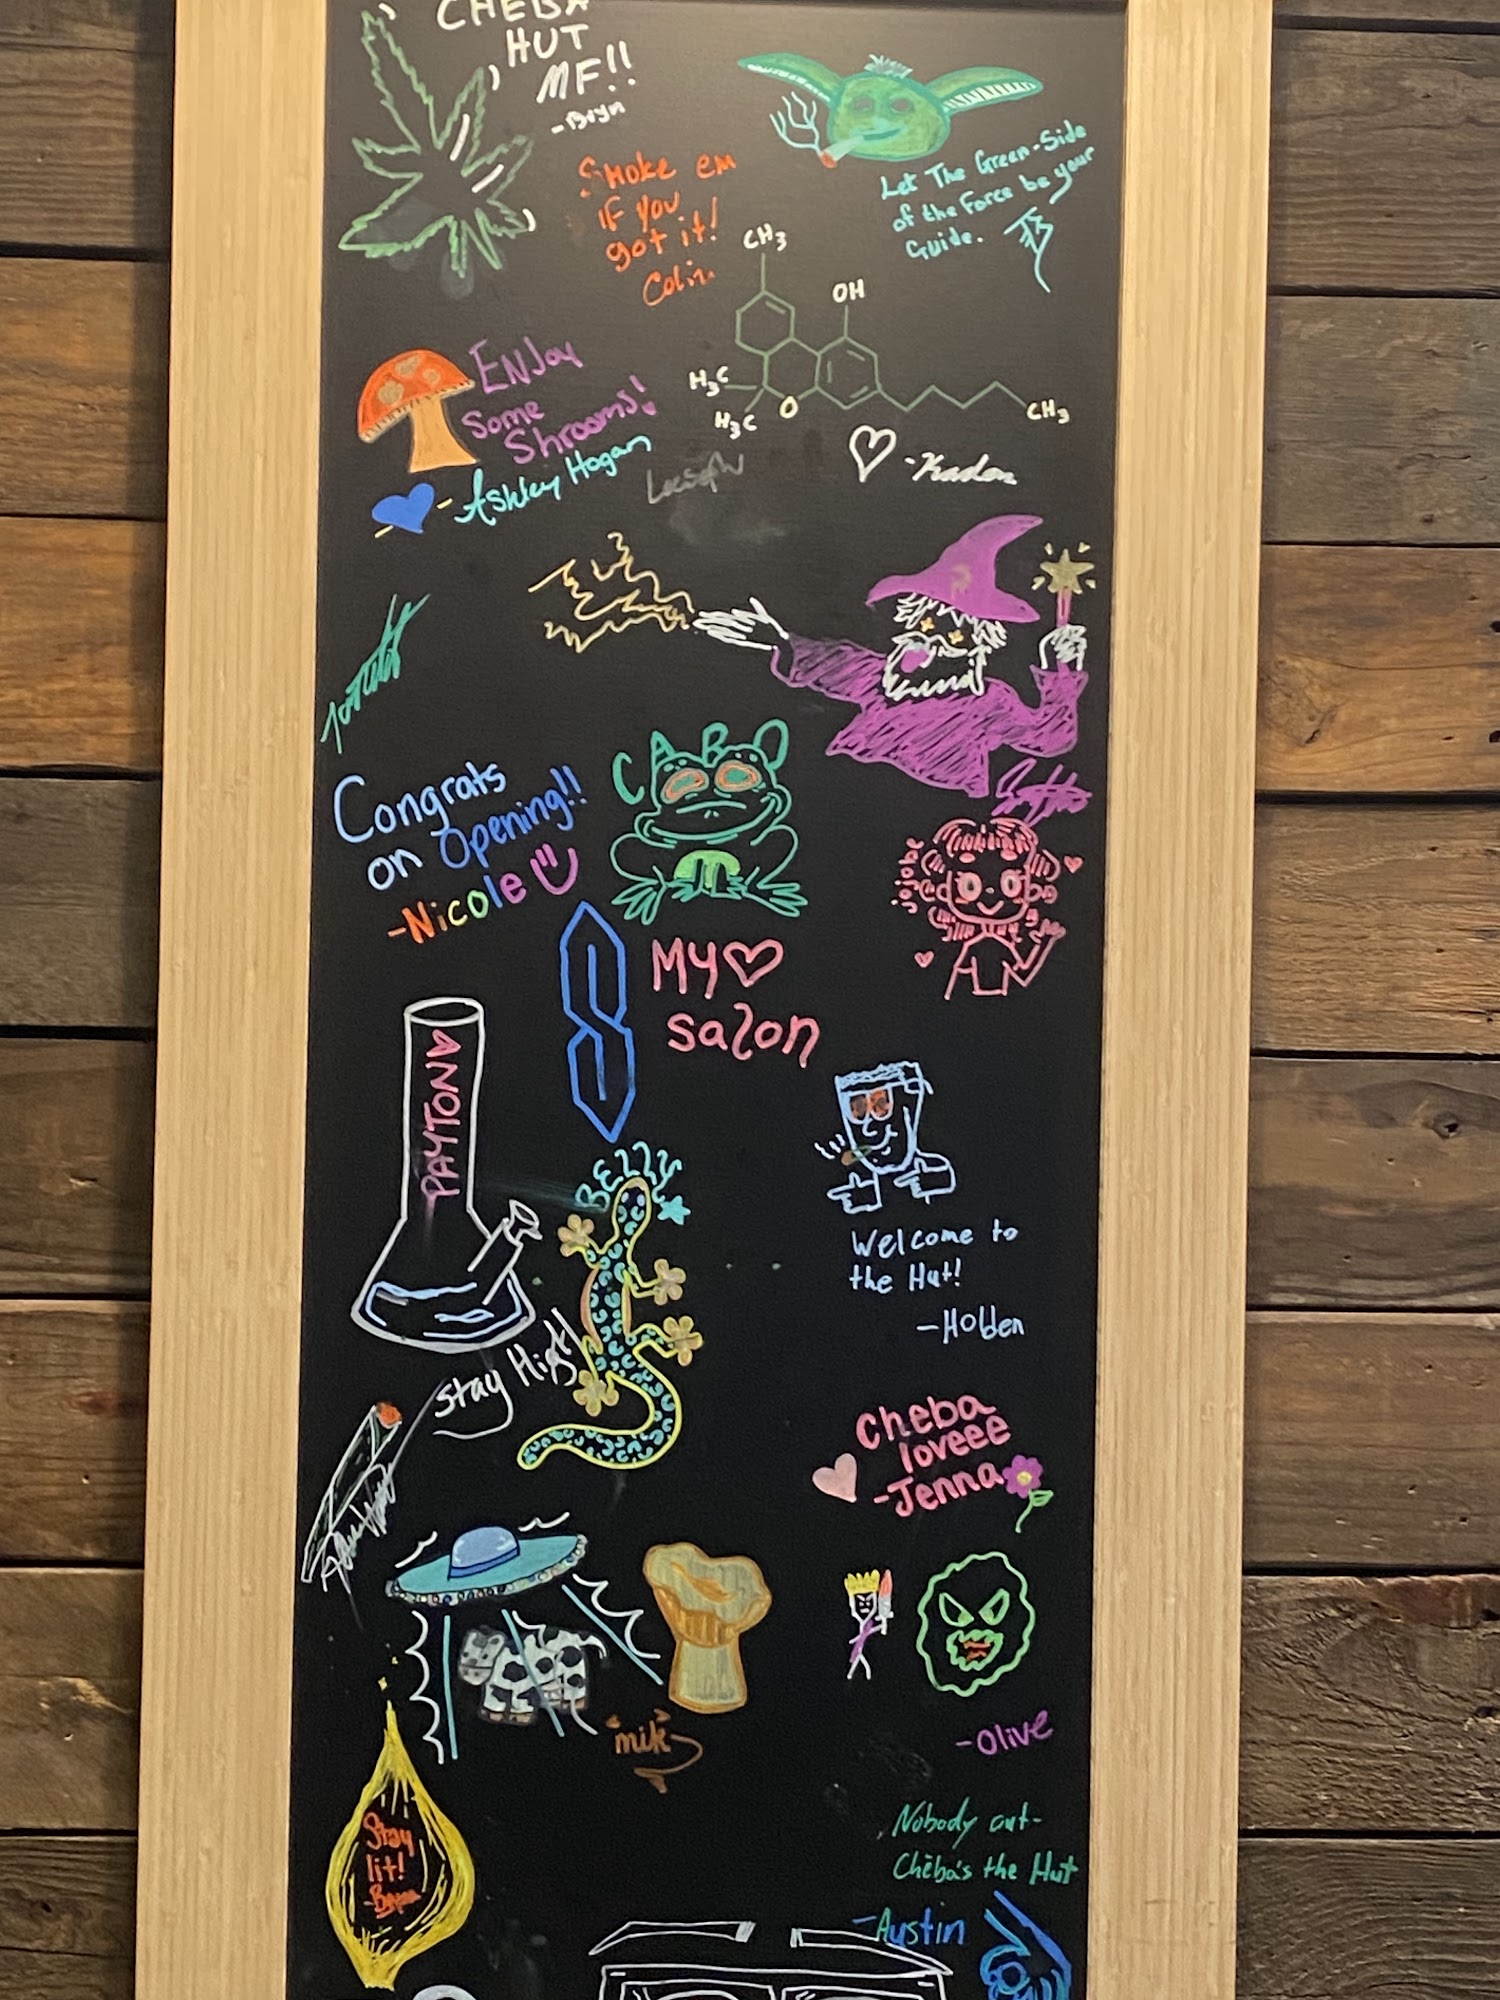 CHEBA
HUT
MF!!
-Bryn
Smoke em
if you
got it!
Colin
Let The Green-Side
of the Force be your
Guide.
CH3
OH
H3C
H3C
O
CH3
ENJoy
Some
Shrooms!
-Ashley Hogan
-Kaden
CABO
Congrats
on Opening!!
-Nicole
jojobe
MY
salon
PAYTON
BEZZY
Welcome to
the Hut!
-Holden
Stay High
Cheba
loveee
-Jenna
"mik"
-Olive
Stay
lit!
Nobody out-
Chēba's the Hut
-Austin